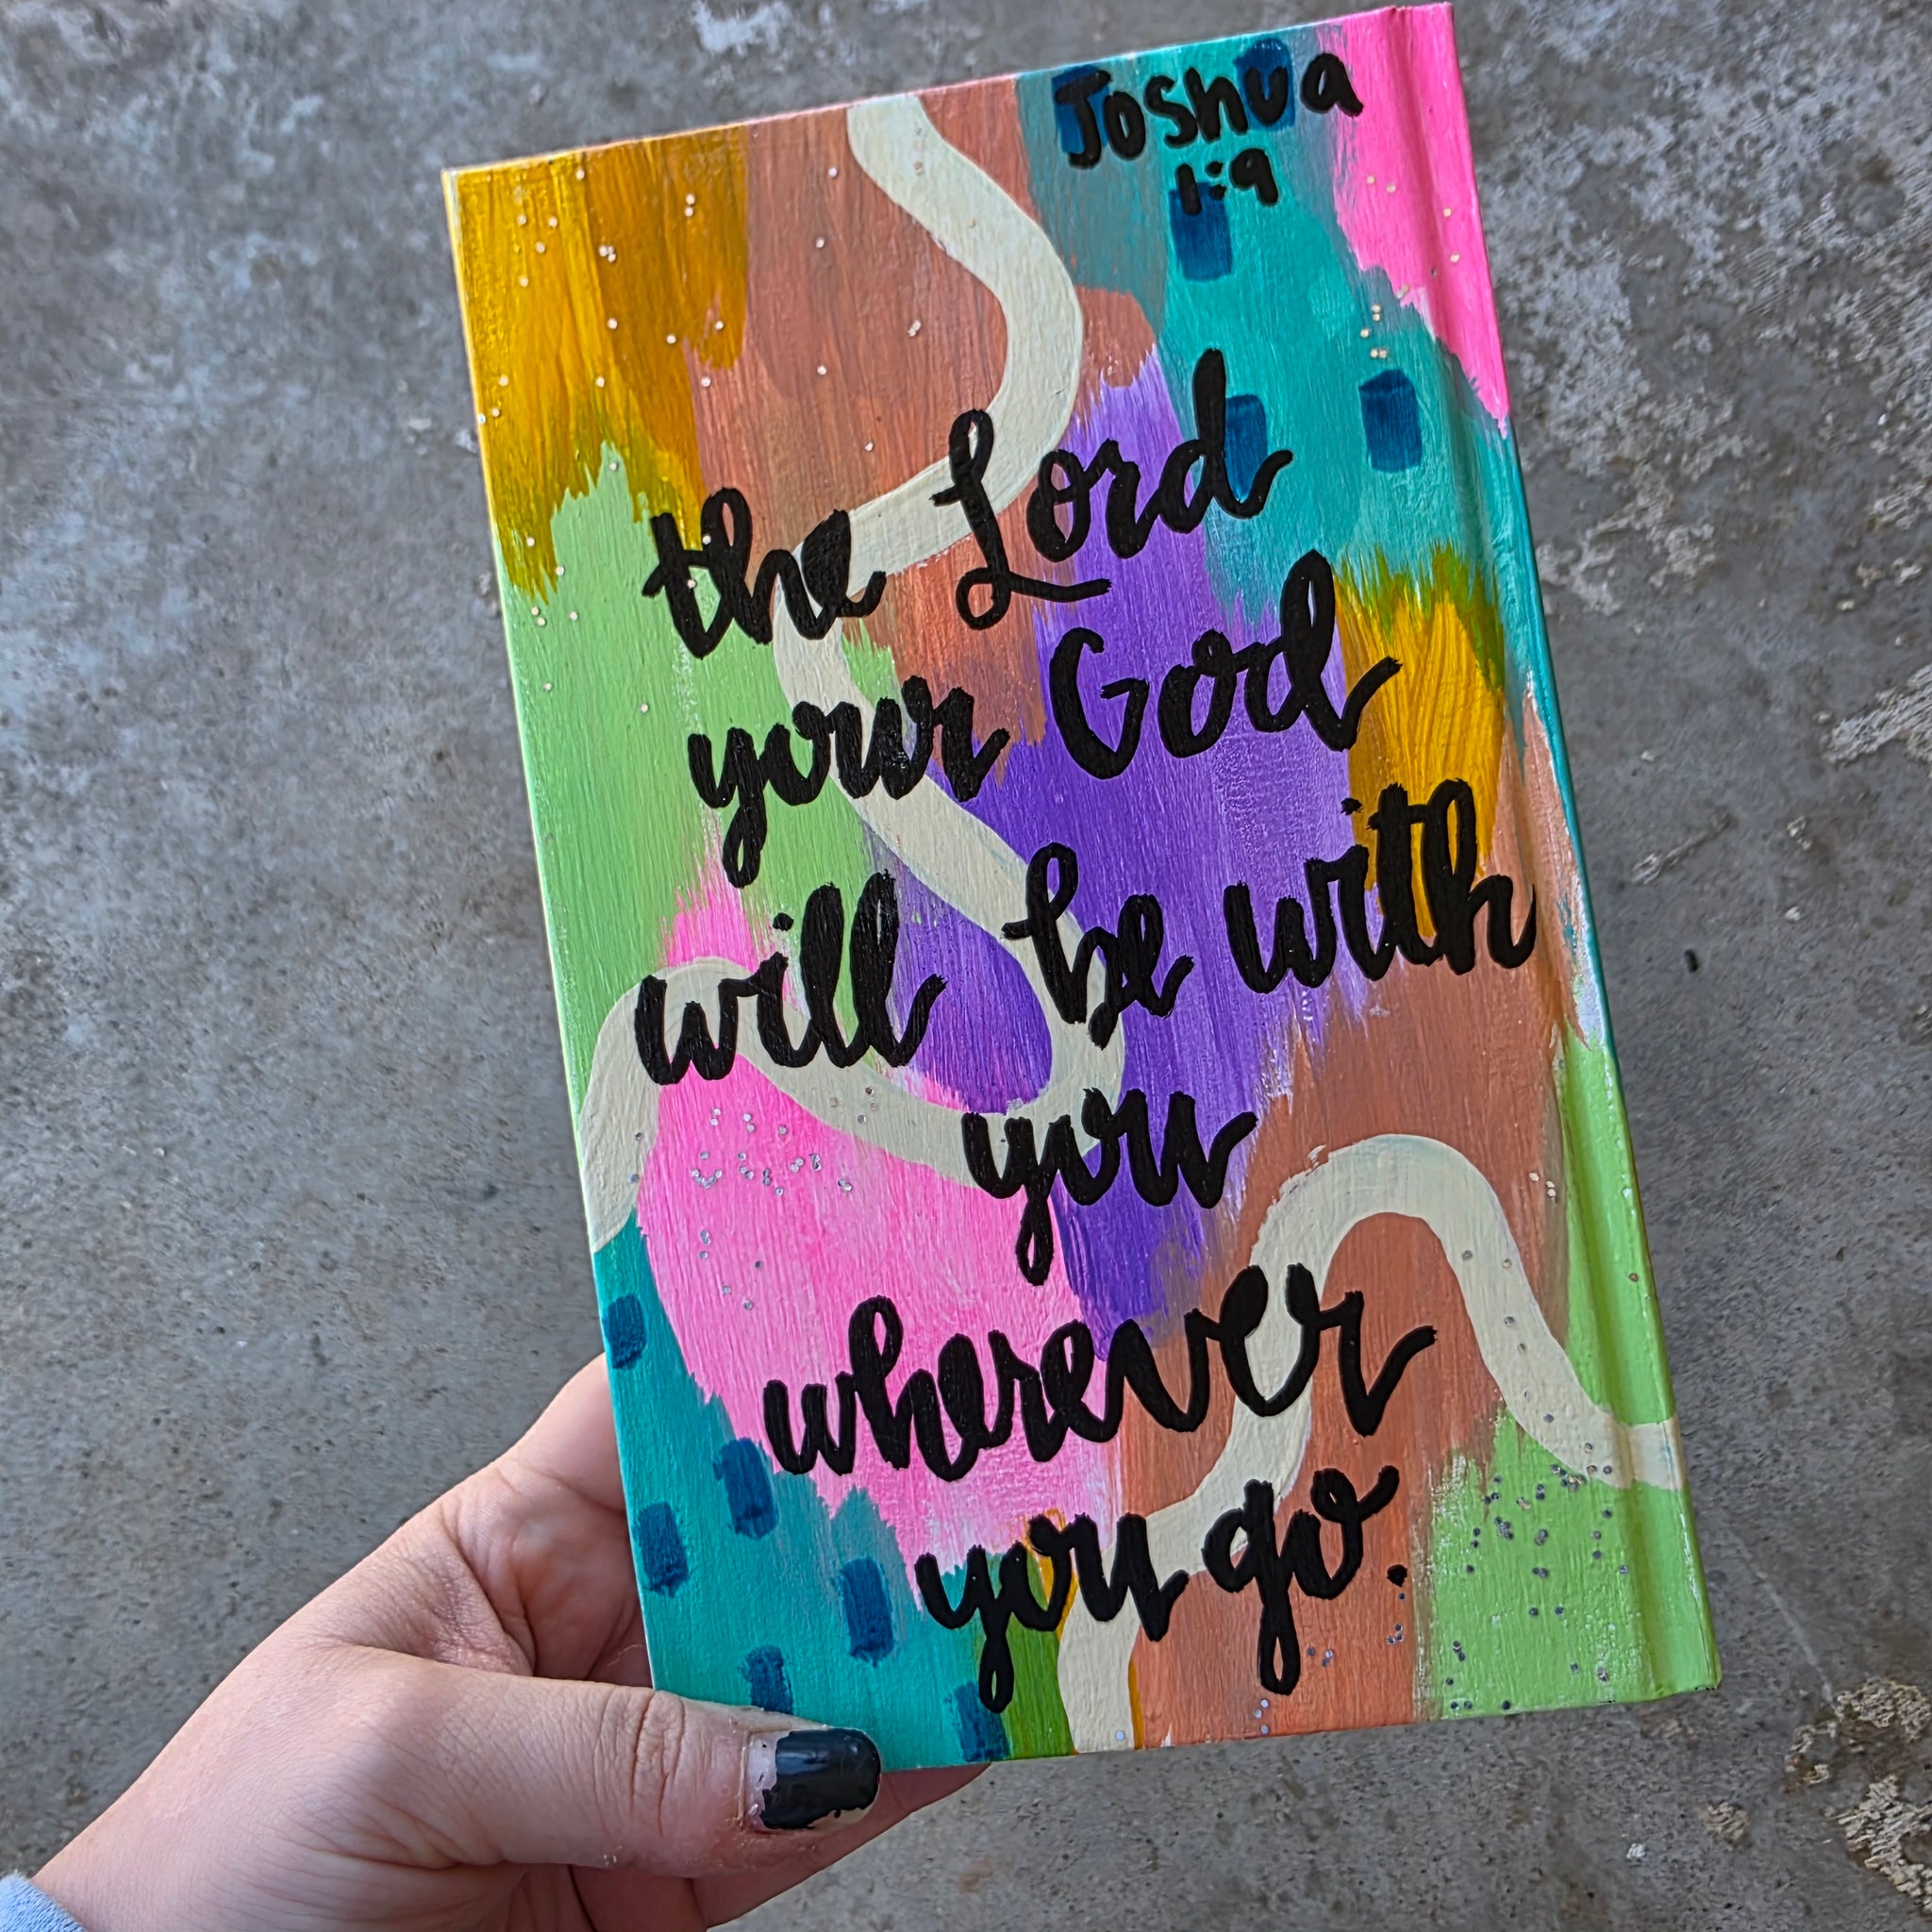 Joshua
1:9
the Lord
your God
will be with
you
wherever
you go.